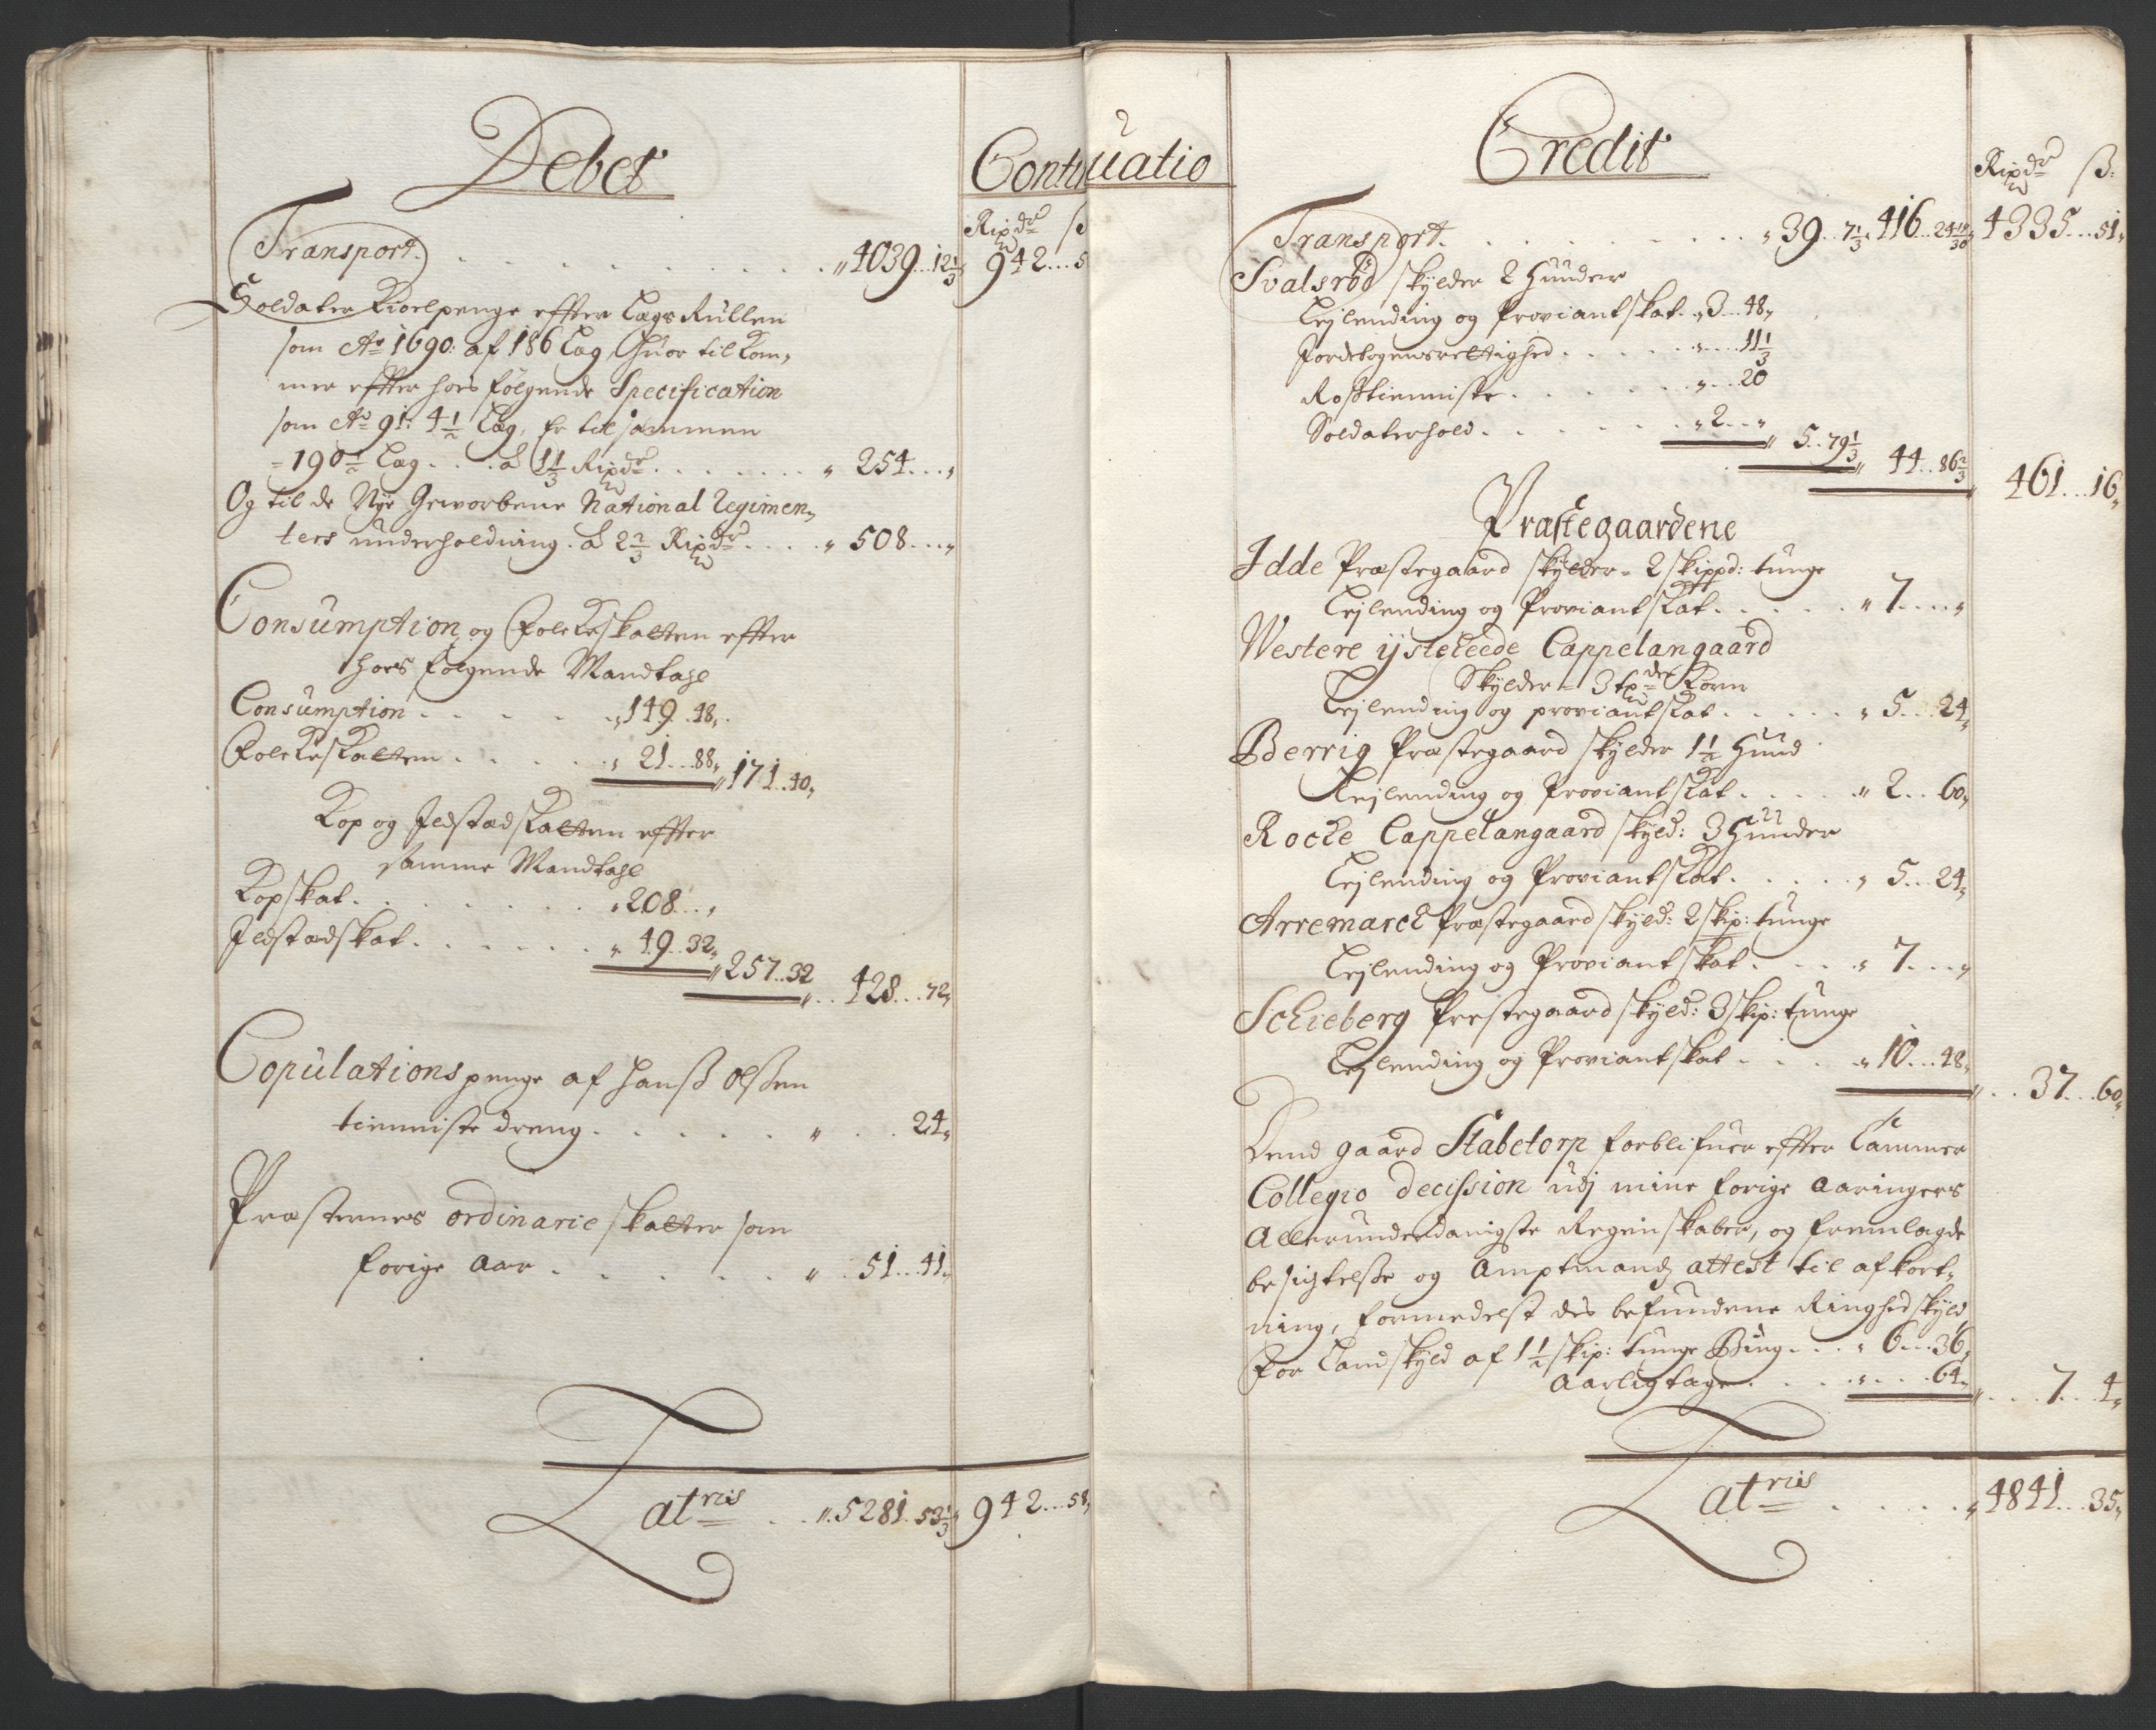 Debet
Continuatio
Rixdr ß
Transport . . . . . . . . . . . " 4039..12 1/3 942...5
Soldater Kioelpenge effter Lægs Rullen
som Ao 1690: af 186 Læg, Huor til kom,
mer effter hoes følgende Specification
som Ao 91: 4 1/2 Læg, Er tilsammen
= 190 1/2 Læg . . . â 1 1/3 Rixdr . . . . . . . " 254...,
Og til de Nye Geworbene National Regimen,
ters underholdning. â 2 2/3 Rixdr . . . . " 508...,
Consumption og Folckeskatten effter
hoes følgende Mandtahl
Consumption . . . . . . . " 149..48,
Folckeskatten . . . . . . " 21...88, " 171..40,
Kop og Ildstædskatten effter
samme Mandtahl
Kopskat . . . . . . . . . " 208...,
Ildstædskat . . . . . . . " 49..32, " 257..32 " . . 428...72,
Copulations penge af Hanß Olßen
tienniste dreng . . . . . . " . . 24,
Præsternes ordinarie skatter som
forige Aar . . . . . . " . 51..41,
Latris . . " 5281..53 1/3 942...58,
Credit
Rixdr ß:
Transport . . . . . . . . . . " 39..7 1/3, 416...24 19/30 4335...51,
Svalsrød skylder 2 Hunder
Leylending og Proviantskat . " 3...48,
Fordebogensrettighed . . . . . " ...11 1/3
Roßtienniste . . . . . . . " ...20
Soldaterhold . . . . . . . " 2...,  " 5..79 1/3 " 44..86 2/3 461...16,
Præstegaardene
Idde Præstegaard skylder - 2 skippd: tunge
Leylending og Proviantskat . . . . . " 7....,
Westere ysteheede Cappelangaard
Skylder = 3 tønder Korn
Leylending og proviantskat . . . . . " 5...24,
Berrig Præstegaard skylder 1 1/2 Hund
Leylending og Proviantskat . . . . . " 2...60,
Rocke Cappelangaard skyld: 3 Hunder
Leylending og Proviantskat . . . . . " 5...24,
Arremarck Præstegaard skyld: 2 skip: tunge
Leylending og Proviantskat . . . . " 7....,
Schieberg Prestegaard skyld: 3 skip: tunge
Leylending og Proviantskat . . . . " 10...48, " . . 37...60,
Dend gaard Stabetorp forblifuer effter Cammer
Collegio decission udj mine forige Aaringers
Allerunderdanigste Regenskaber, og fremlagde
besigtelße og Amptmandz attest til afkort,
ning, formedelst des befundene Ringhed skyld,
For Landskyld af 1 1/2 skip: tunge Bÿug . . . " 6...36,
Aarligtage . . . . . " ....64, " . . . 7...4,
Latris . . . . . . " 4841...35,